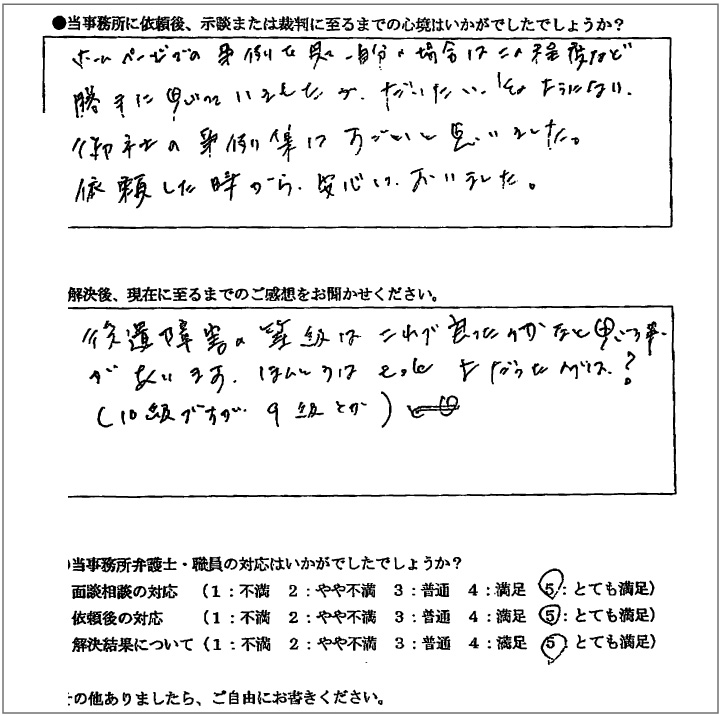 ●当事務所に依頼後、示談または裁判に至るまでの心境はいかがでしたでしょうか？
ホームページでの事例を見 自分の場合はこの程度など
勝手に思っていましたが、だいたい、そのようになり、
御社の事例集は すごいと思いました。
依頼した時から、安心して おいました。
解決後、現在に至るまでのご感想をお聞かせください。
後遺障害の等級は これで良ったのかなと思う事
があります。ほんとうは もっと 上だったのでは？
（10級ですが 9級とか）
当事務所弁護士・職員の対応はいかがでしたでしょうか？
面談相談の対応 （1：不満 2：やや不満 3：普通 4：満足 5：とても満足）
依頼後の対応 （1：不満 2：やや不満 3：普通 4：満足 5：とても満足）
解決結果について（1：不満 2：やや不満 3：普通 4：満足 5：とても満足）
その他ありましたら、ご自由にお書きください。